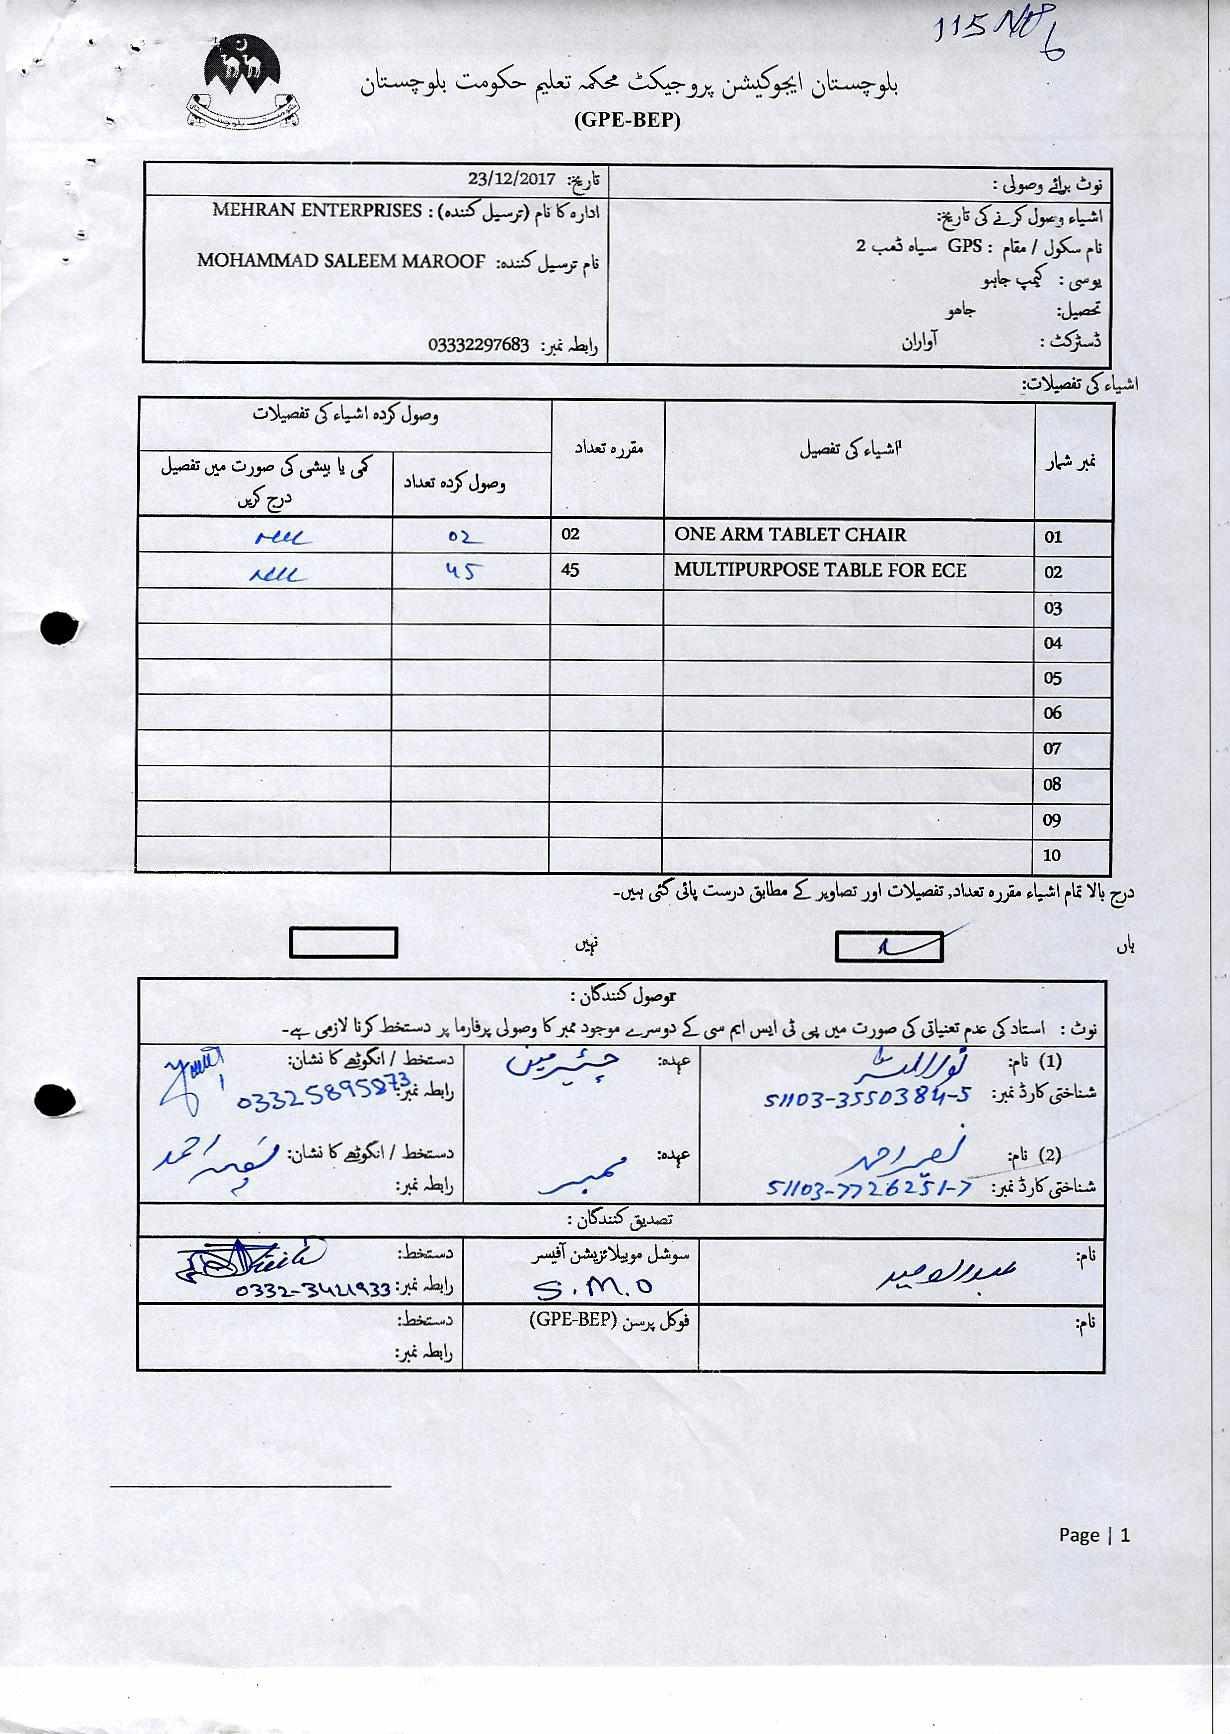 115
بلوچستان ایجوکیشن پروجیکٹ محکمہ تعلیم حکومت بلوچستان
(GPE-BEP)
نوٹ برائے وصولی :
تاریخ: 23/12/2017
اشیاء وصول کرنے کی تاریخ:
نام سکول / مقام : GPS سیاہ ڈمب 2
یوسی : کیمپ جاہو
تحصیل: جاھو
ڈسٹرکٹ : آواران
ادارہ کا نام (ترسیل کنندہ) : MEHRAN ENTERPRISES
نام ترسیل کنندہ: MOHAMMAD SALEEM MAROOF
رابطہ نمبر: 03332297683
اشیاء کی تفصیلات:
نمبر شمار اشیاء کی تفصیل مقررہ تعداد وصول کردہ اشیاء کی تفصیلات
وصول کردہ تعداد کمی یا بیشی کی صورت میں تفصیل درج کریں
01 ONE ARM TABLET CHAIR 02 02
02 MULTIPURPOSE TABLE FOR ECE 45 45
03
04
05
06
07
08
09
10
درج بالا تمام اشیاء مقررہ تعداد, تفصیلات اور تصاویر کے مطابق درست پائی گئی ہیں۔
ہاں نہیں
وصول کنندگان :
نوٹ : استاد کی عدم تعنیاتی کی صورت میں پی ٹی ایس ایم سی کے دوسرے موجود ممبر کا وصولی پرفارما پر دستخط کرنا لازمی ہے۔
(1) نام: عہدہ: چئیرمین دستخط / انگوٹھے کا نشان:
شناختی کارڈ نمبر: 51103-3550384-5 رابطہ نمبر: 03325895873
(2) نام: نصیر احمد عہدہ: ممبر دستخط / انگوٹھے کا نشان: نصیر احمد
شناختی کارڈ نمبر: 51103-7726251-7 رابطہ نمبر:
تصدیق کنندگان :
نام: سوشل موبیلائزیشن آفیسر دستخط:
S.M.O رابطہ نمبر: 0332-3421933
نام: فوکل پرسن (GPE-BEP) دستخط:
رابطہ نمبر:
Page | 1